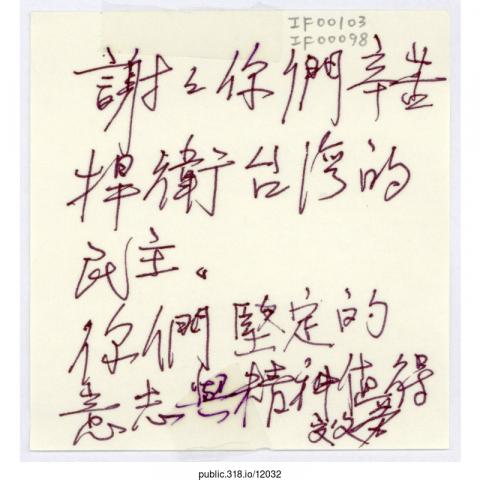 IF00103
IF00098
謝々你們辛苦
捍衛台湾的
民主。
你們堅定的
意志與精神值得
public.318.io/12032